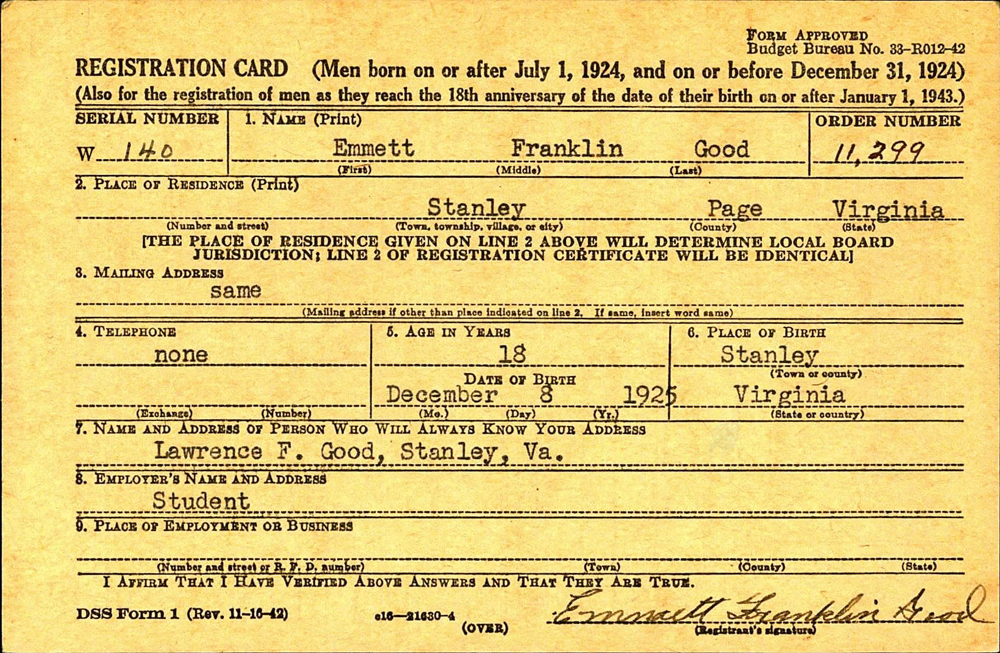 FORM APPROVED
Budget Bureau No. 33-R012-42
REGISTRATION CARD (Men born on or after July 1, 1924, and on or before December 31, 1924)
(Also for the registration of men as they reach the 18th anniversary of the date of their birth on or after January 1, 1943.)
SERIAL NUMBER 1. NAME (Print) ORDER NUMBER
W 140 Emmett Franklin Good 11,299
(First) (Middle) (Last)
2. PLACE OF RESIDENCE (Print)
Stanley Page Virginia
(Number and street) (Town, township, village, or city) (County) (State)
[THE PLACE OF RESIDENCE GIVEN ON LINE 2 ABOVE WILL DETERMINE LOCAL BOARD
JURISDICTION; LINE 2 OF REGISTRATION CERTIFICATE WILL BE IDENTICAL]
3. MAILING ADDRESS
same
(Mailing address if other than place indicated on line 2. If same, insert word same)
4. TELEPHONE 5. AGE IN YEARS 6. PLACE OF BIRTH
none 18 Stanley
(Town or county)
DATE OF BIRTH
December 8 1925 Virginia
(Exchange) (Number) (Mo.) (Day) (Yr.) (State or country)
7. NAME AND ADDRESS OF PERSON WHO WILL ALWAYS KNOW YOUR ADDRESS
Lawrence F. Good, Stanley, Va.
8. EMPLOYER'S NAME AND ADDRESS
Student
9. PLACE OF EMPLOYMENT OR BUSINESS
(Number and street or R. F. D. number) (Town) (County) (State)
I AFFIRM THAT I HAVE VERIFIED ABOVE ANSWERS AND THAT THEY ARE TRUE.
DSS Form 1 (Rev. 11-16-42) e16-21630-4 Emmett Franklin Good
(OVER) (Registrant's signature)